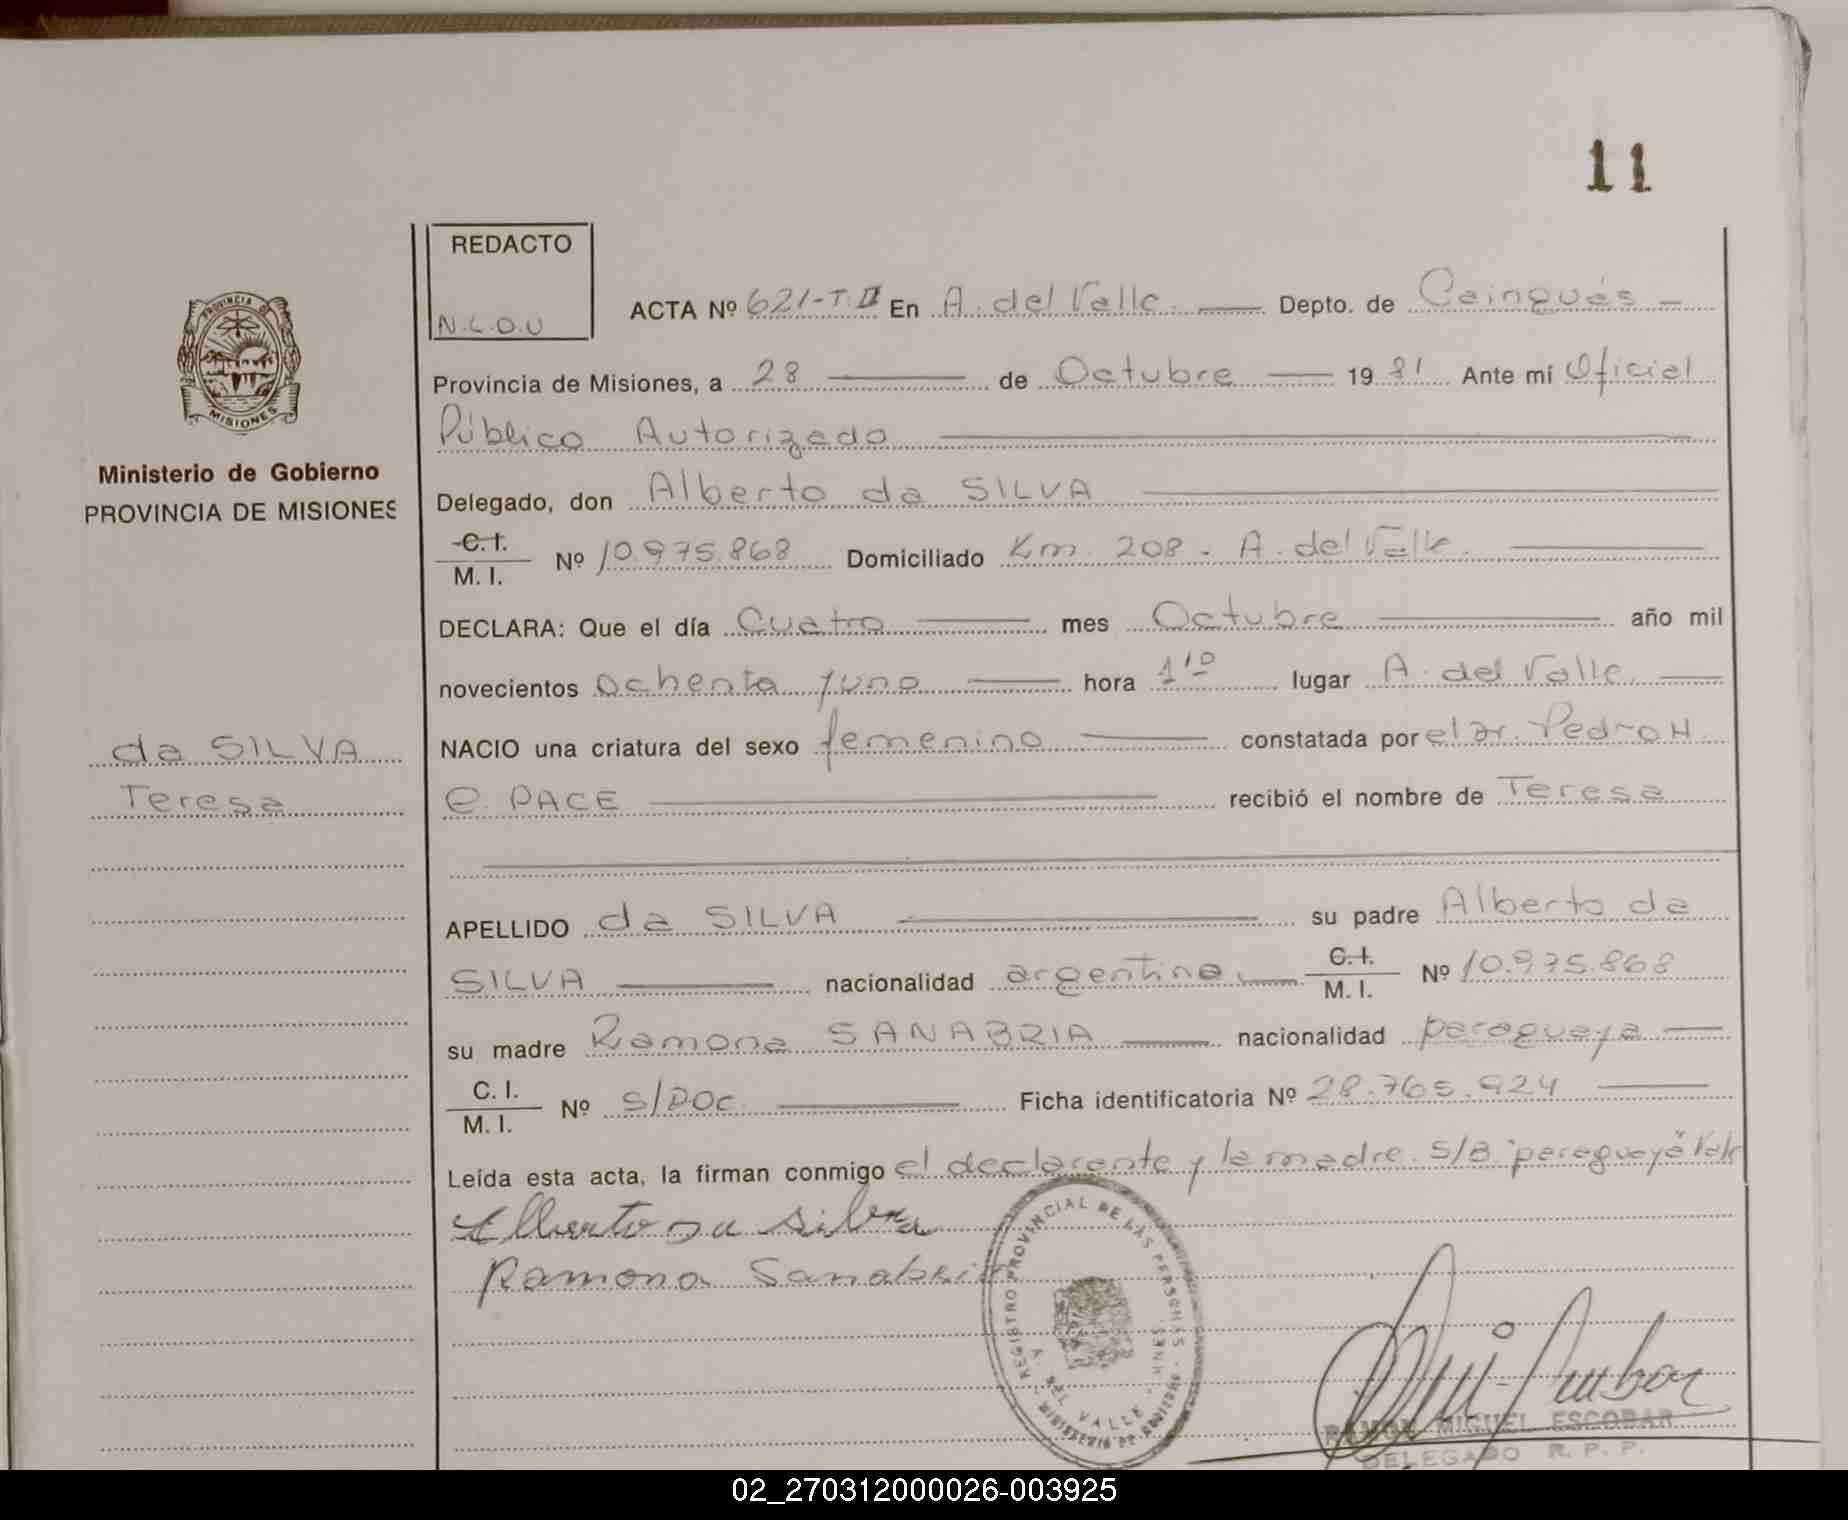 11
REDACTO
N.L.O.U
ACTA Nº 621-T.II En A. del Valle Depto. de Cainguás
Provincia de Misiones, a 28 de Octubre 19 81 Ante mí Oficial
Público Autorizado
Delegado, don Alberto da SILVA
C. I.
M. I. Nº 10.975.868 Domiciliado Km. 208 - A. del Valle.
DECLARA: Que el día Cuatro mes Octubre año mil
novecientos ochenta y uno hora 1'10 lugar A. del Valle
NACIO una criatura del sexo femenino constatada por el Dr. Pedro H.
e. PACE recibió el nombre de Teresa
APELLIDO da SILVA su padre Alberto da
SILVA nacionalidad argentina C. I.
M. I. Nº 10.975.868
su madre Ramona SANABRIA nacionalidad paraguaya
C. I.
M. I. Nº S/DOC. Ficha identificatoria Nº 28.765.924
Leída esta acta, la firman conmigo el declarante y la madre. S/B. "paraguaya" Vale
Alberto da Silva
Ramona Sanabria
REGISTRO PROVINCIAL DE LAS PERSONAS
A. DEL VALLE
RAMON MIGUEL ESCOBAR
DELEGADO R. P. P.
PROVINCIA D
MISIONES
Ministerio de Gobierno
PROVINCIA DE MISIONES
da SILVA
Teresa
02_270312000026-003925